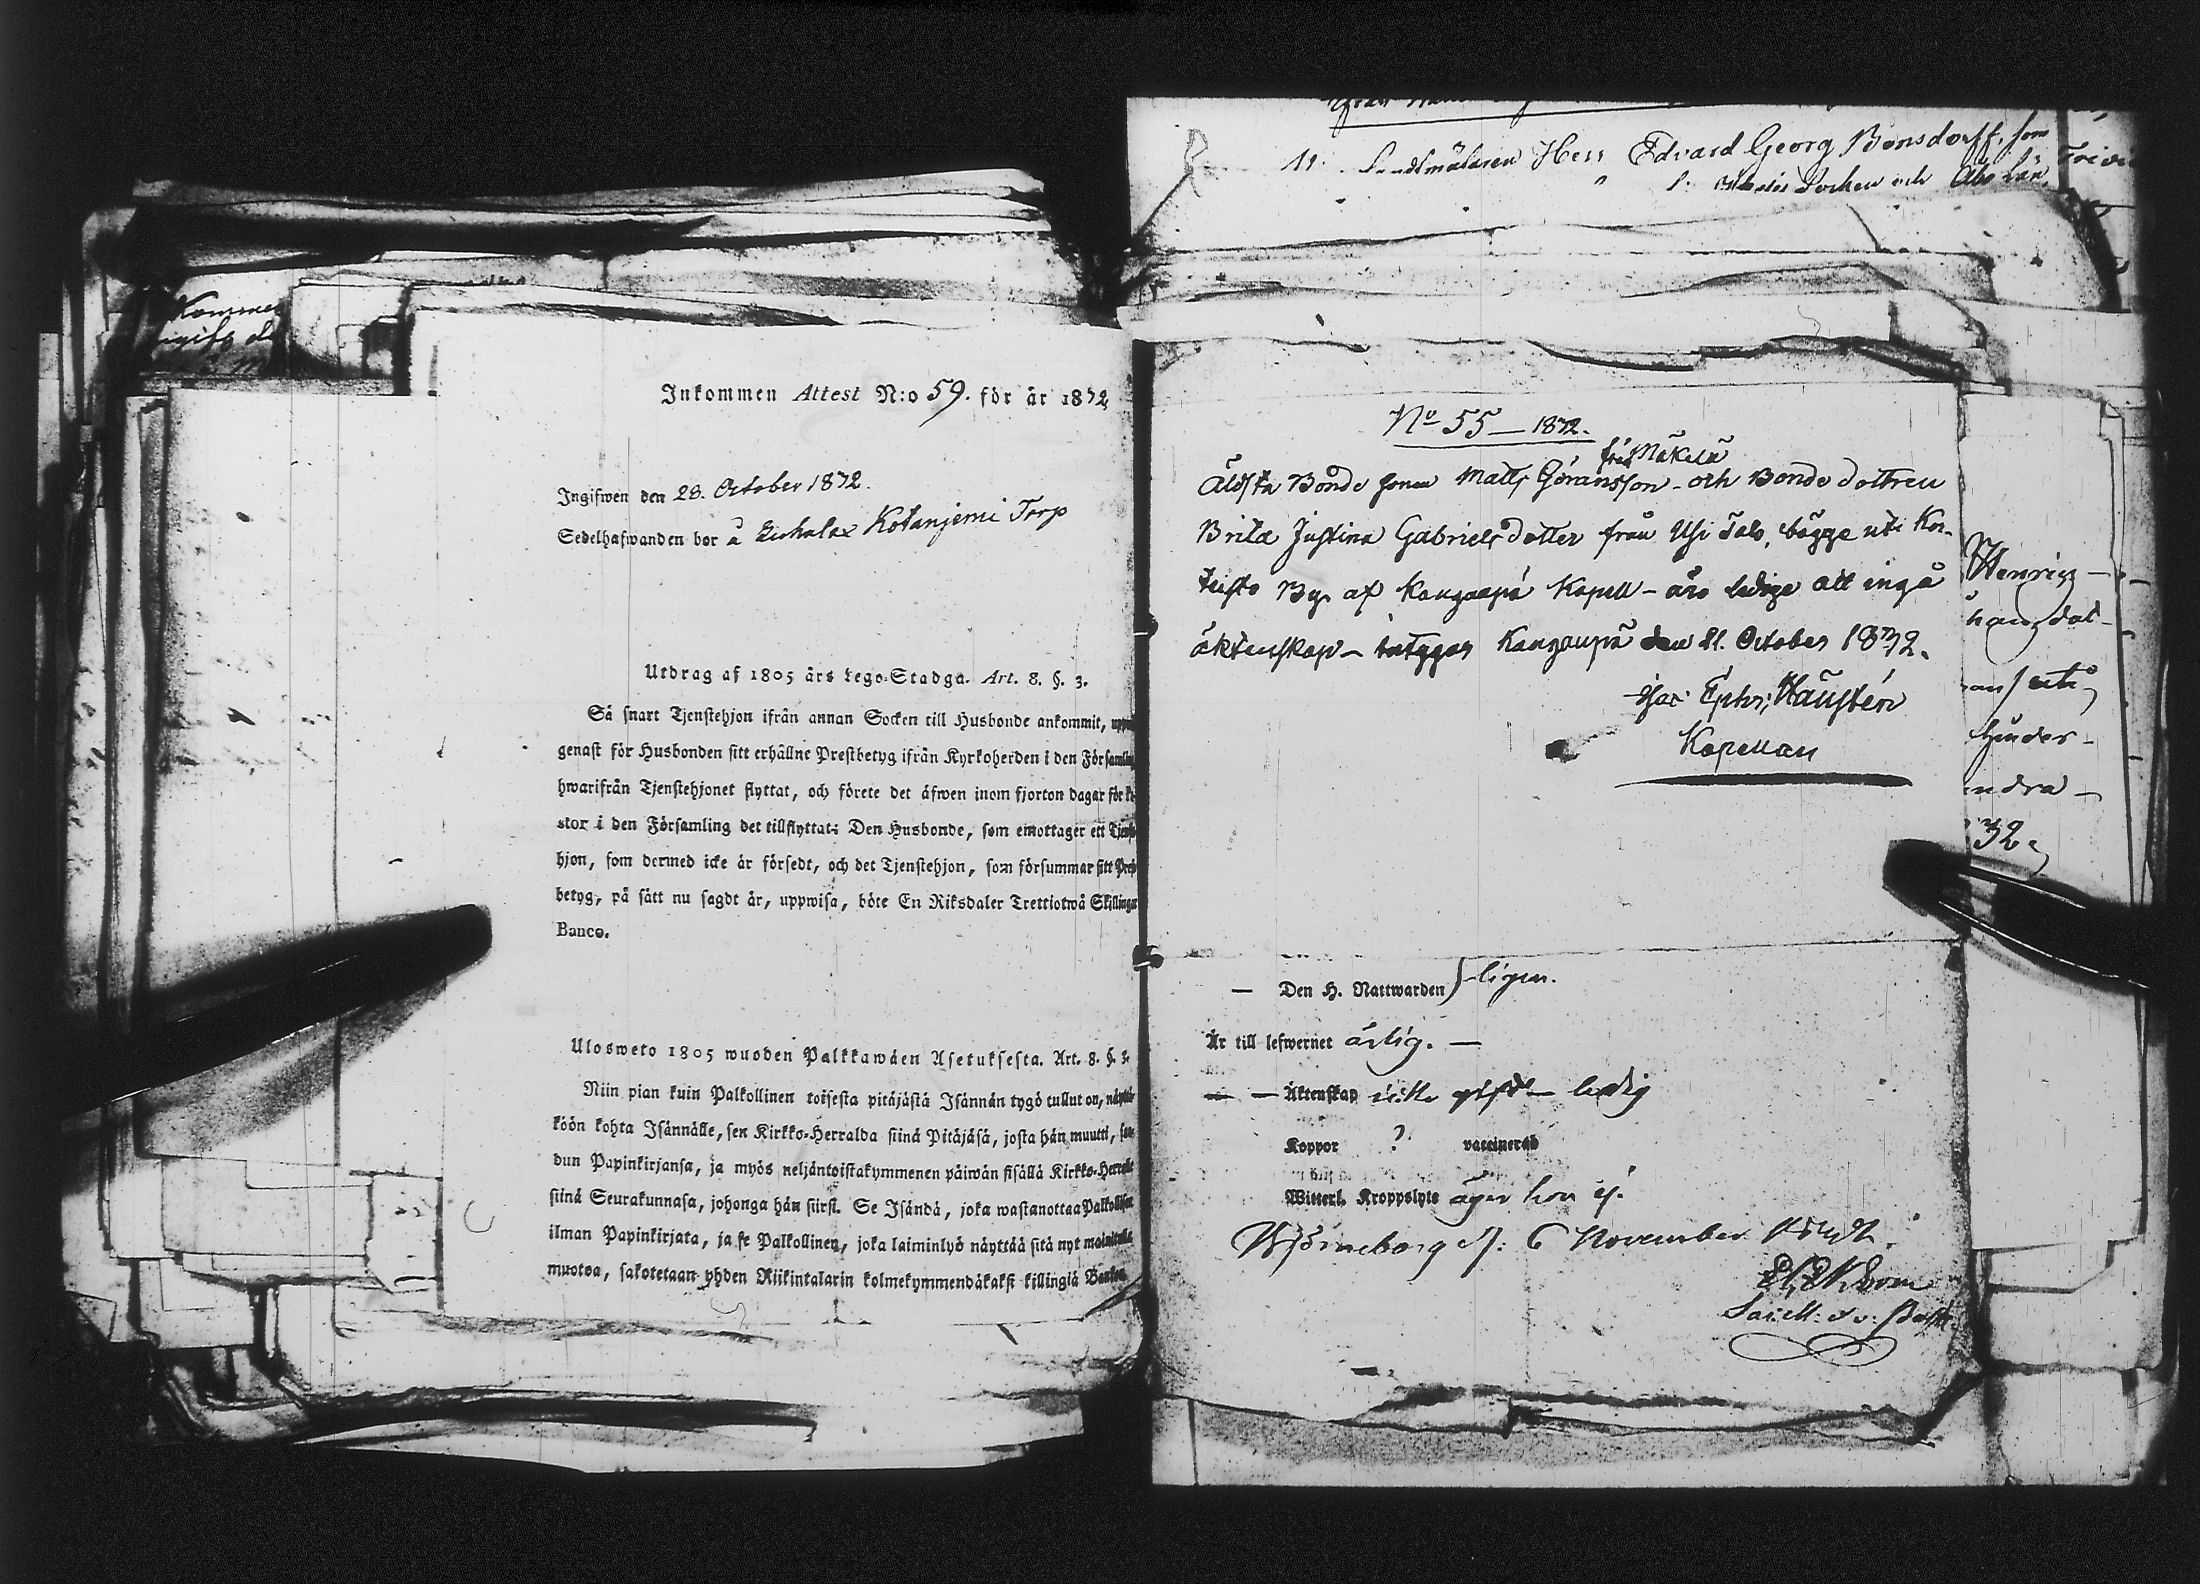 Kommer
Inkommen Attest N:o 59. för år 1872
Ingifwen den 28. October 1872.
Sedelhafwanden bor å Kotanjemi Torp
Utdrag af 1805 års Lego-Stadga. Art. 8. §. 3.
Så snart Tjenstehjon ifrån annan Socken till Husbonde ankommit,
genast för Husbonden sitt erhållne Prestbetyg ifrån Kyrkoherden i den Församling
hwarifrån Tjenstehjonet flyttat, och förete det äfwen inom fjorton dagar för
stor i den Församling det tillflyttat: Den Husbonde, som emottager ett Tjenste
hjon, som dermed icke är försedt, och det Tjenstehjon, som försummar sitt Prest
betyg, på sätt nu sagdt är, uppwisa, böte En Riksdaler Trettiotwå Skillingar
Banco.
Ulosweto 1805 wuoden Palkkawäen Asetuksesta. Art. 8. §. 3.
Niin pian kuin Palkollinen toisesta pitäjästä Isännän tygö tullut on, näyttä
köön kohta Isännälle, sen Kirkko-Herralda siinä Pitäjäsä, josta hän muutti, saa
dun Papinkirjansa, ja myös neljäntoistakymmenen päiwän sisällä Kirkko-Herralle
siinä Seurakunnasa, johonga hän siirsi. Se Isändä, joka wastanottaa Palkollisen
ilman Papinkirjata, ja se Palkollinen, joka laiminlyö näyttää sitä nyt mainitulla
muotoa, sakotetaan yhden Riikintalarin kolmekymmendäkaksi killingiä Bankos
11. Landtmätaren Herr Edvard Georg Bonsdorff, som
Socken och Åbo Län.
No 55 — 1872.
från Mäkelä
Äldsta Bonde sonen Matts Göransson - och Bonde dottren
Brita Justina Gabrielsdotter från Usi Talo, bägge uti Kor-
teisto By af Kangaspä Kapell - äro ledige att ingå
äktenskap - intygas Kangaspä den 21. October 1872.
Haustén
Kapellan
Henrics
uti
hinder-
andra
32.
— Den H. Nattwarden) -ligen.
Är till lefwernet ärlig. —
— — Äktenskap icke gift — ledig
Koppor ? vaccinerad
Witterl. Kroppslyte äger hon ej.
Björneborg d. 6 November 1872.